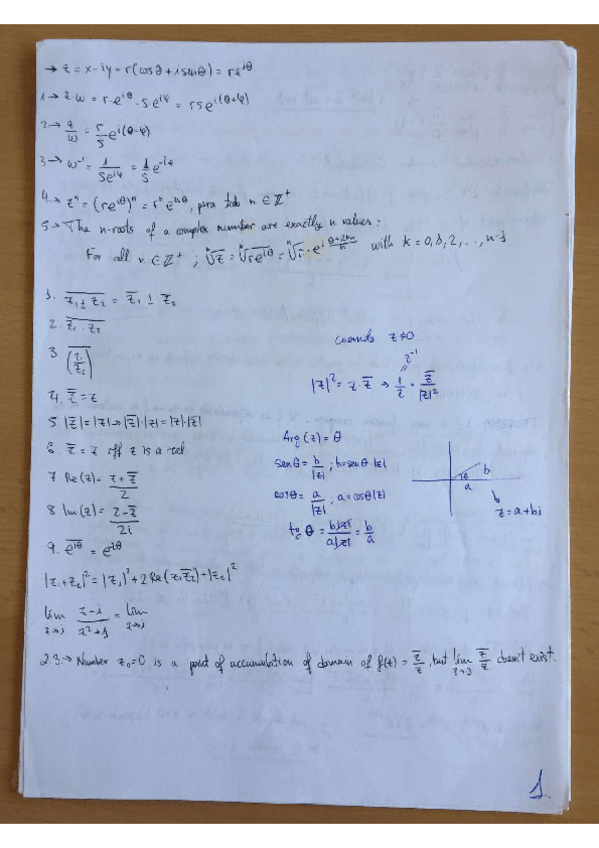 → z = x - iy = r(cosθ + i senθ) = re^{iθ}
1→ z·w = r·e^{iθ}·s·e^{iφ} = rse^{i(θ+φ)}
2→ z/w = r/s e^{i(θ-φ)}
3→ w^{-1} = 1/(se^{iφ}) = 1/s e^{-iφ}
4→ z^n = (re^{iθ})^n = r^n e^{inθ}, para todo n ∈ Z^+
5→ The n-roots of a complex number are exactly n values:
For all n ∈ Z^+ ; ⁿ√z = ⁿ√(re^{iθ}) = ⁿ√r · e^{i (θ+2kπ)/n} with k = 0,1,2,...,n-1
1. \overline{z₁ ± z₂} = \overline{z₁} ± \overline{z₂}
2. \overline{z₁ · z₂}
3 \overline{(z₁/z₂)}
4. \overline{\overline{z}} = z
5 |\overline{z}| = |z| → |\overline{z}|·|z| = |z|·|\overline{z}|
6. \overline{z} = z iff z is a real
7 Re(z) = (z + \overline{z})/2
8 Im(z) = (z - \overline{z})/2i
9. \overline{e^{iθ}} =
|z₁+z₂|² = |z₁|² + 2Re(z₁\overline{z₂}) + |z₂|²
lim z→i (z-i)/(z²+1) = lim z→i
cuando z≠0
z^{-1}
|z|² = z·\overline{z} → 1/z = \overline{z}/|z|²
Arg(z) = θ
senθ = b/|z| ; b = senθ·|z|
cosθ = a/|z| , a = cosθ|z|
tg θ = b|z|/a|z| = b/a
θ b
a
z = a + bi
2.3.→ Number z₀=0 is a point of accumulation of domain of f(z) = \overline{z}/z, but lim z→0 \overline{z}/z doesn't exist.
1.